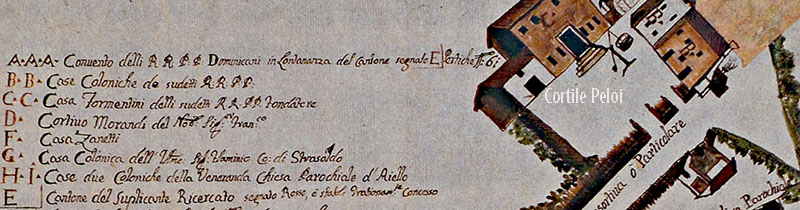 A·A·A· Convento delli R R P P Dominicani in Lontananza del Cantone segnato E Pertiche N: 6:
B·B· Case Coloniche de sudetti R.R.P.P.
C·C· Casa Formentini delli sudetti R.R.P.P. Fondatore
D· Cortivo Morandi del Nob: Sig: Fran:co
F· Casa Zanetti
G· Casa Colonica dell' Sig: Co: di Strasoldo
H·I· Case due Coloniche della Veneranda Chiesa Parochiale d'Aiello
E Cantone del Suplicante Ricercato segnato Rosso, è Concesso
Cortile Peloi
o Particolare
Parochiale